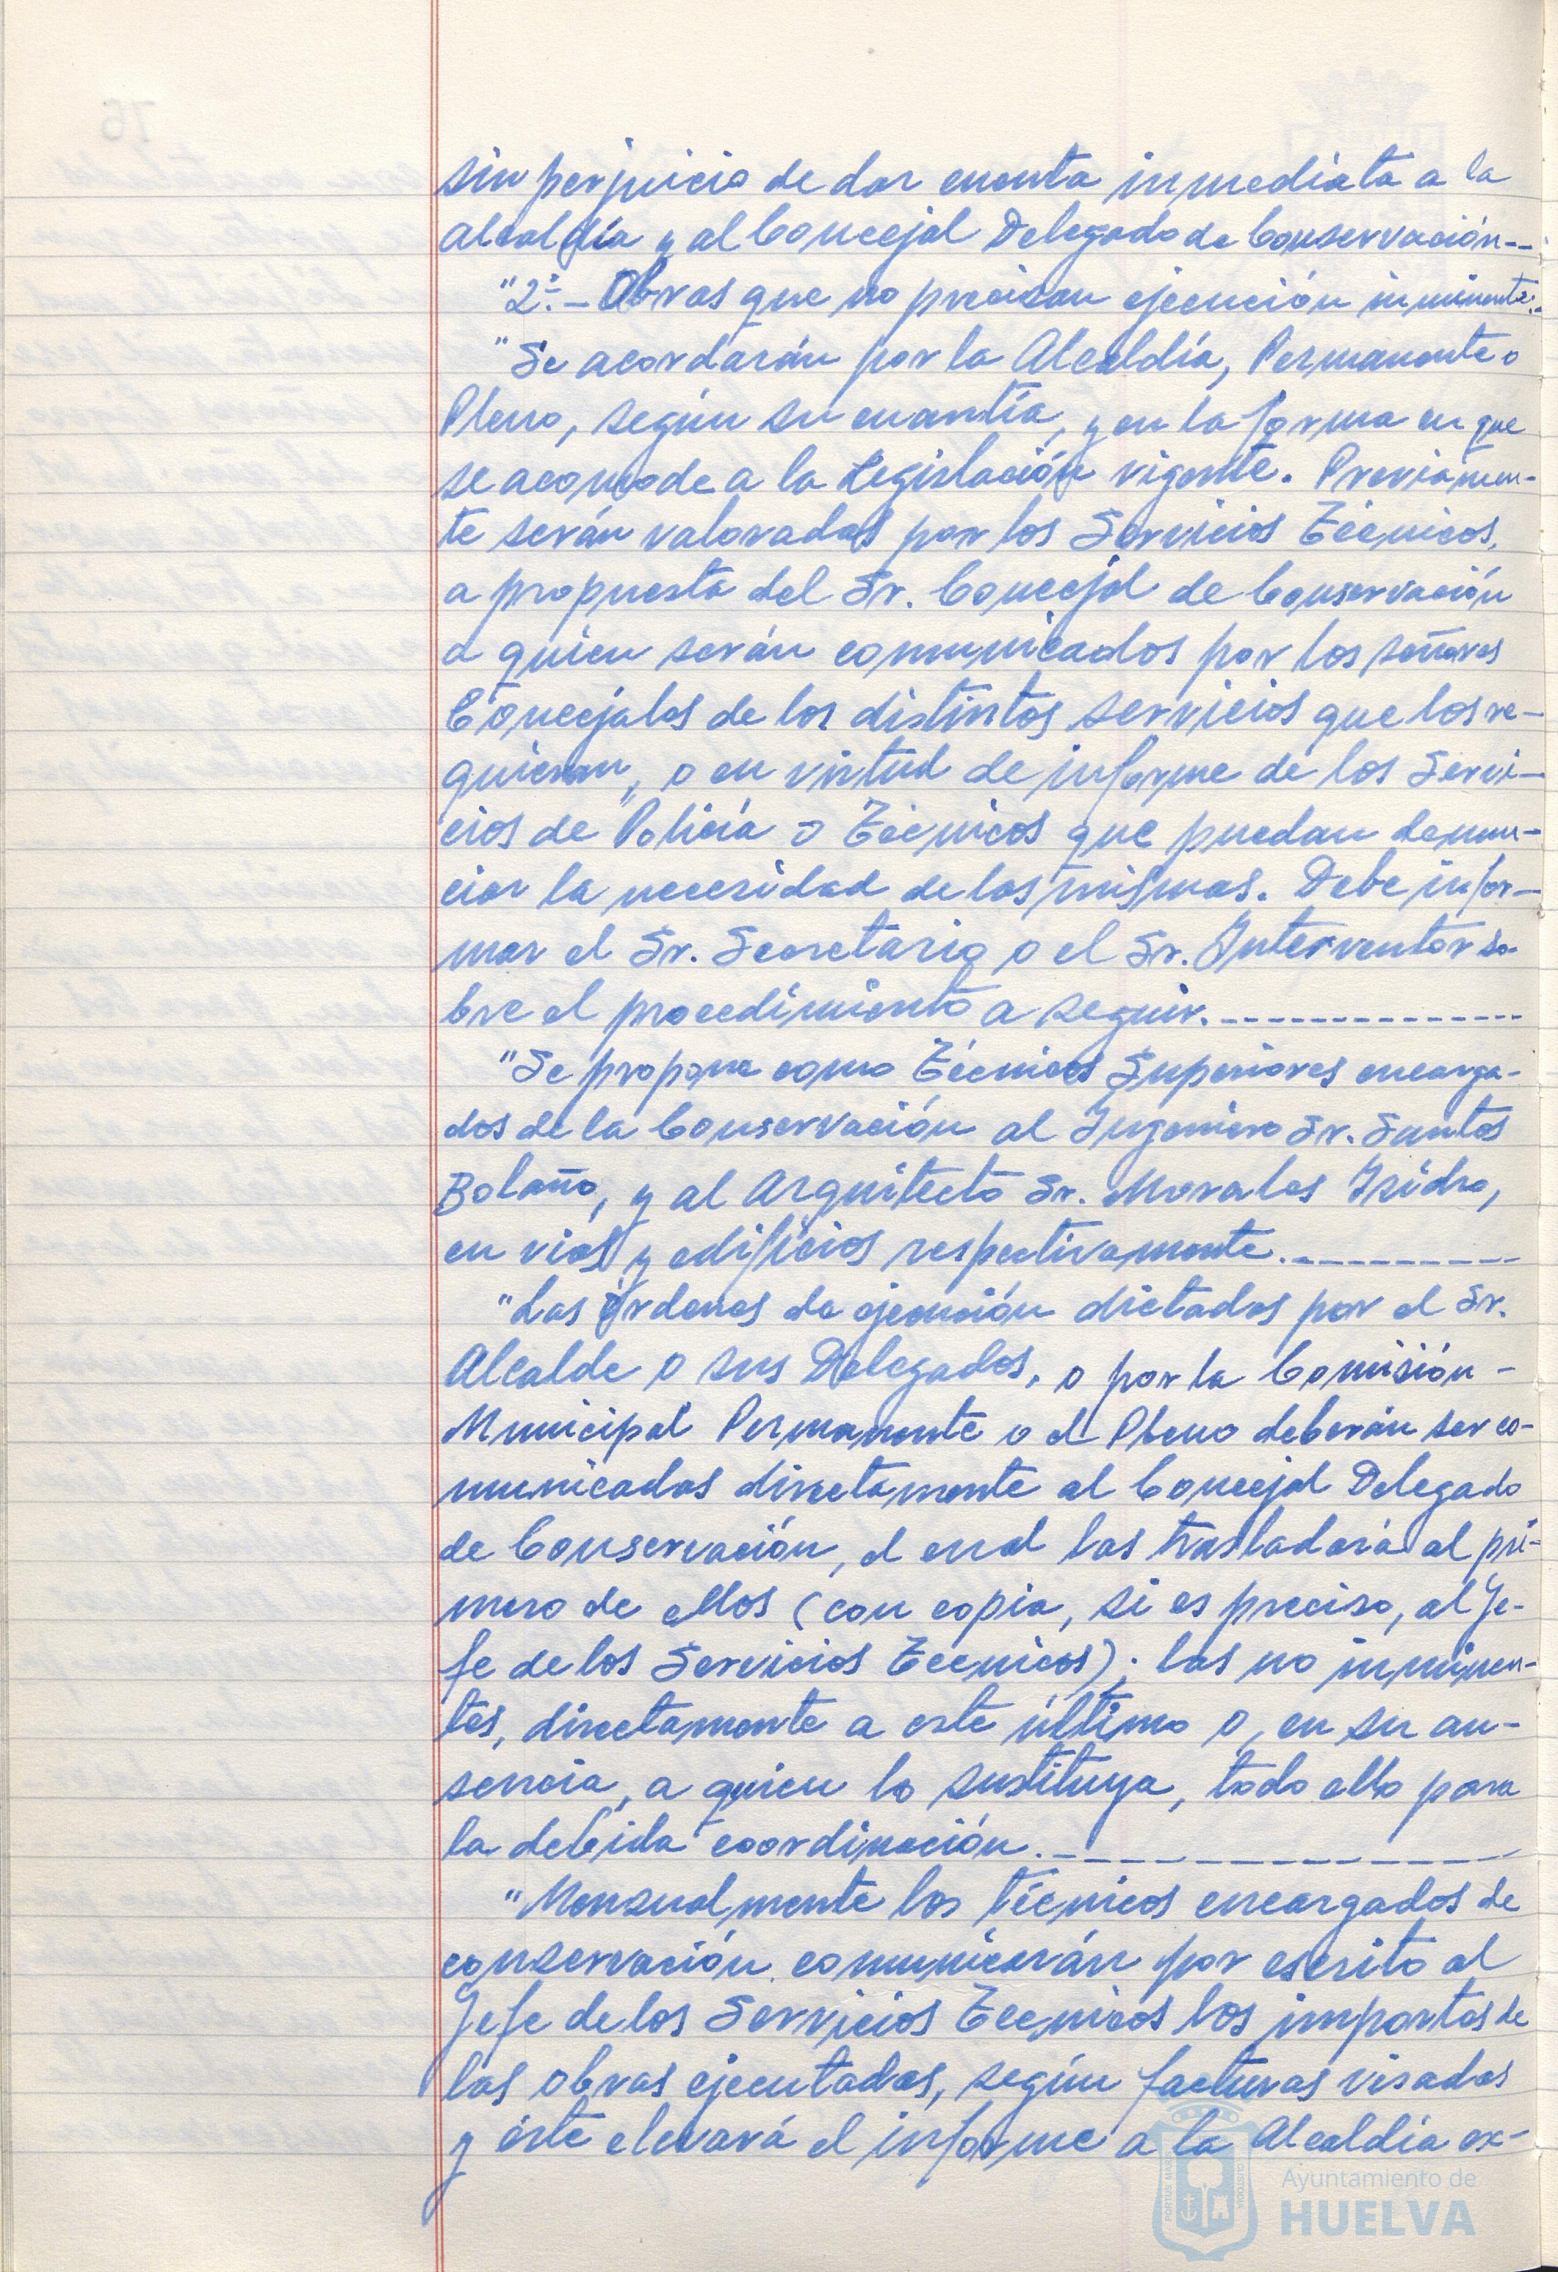 sin perjuicio de dar cuenta inmediata a la
Alcaldía y al Concejal Delegado de Conservación--
"2º.- Obras que no precisan ejecución inminente.
"Se acordarán por la Alcaldía, Permanente o
Pleno, según su cuantía, y en la forma en que
se acomode a la Legislación vigente. Previamen-
te serán valoradas por los Servicios Técnicos,
a propuesta del Sr. Concejal de Conservación
a quien serán comunicados por los señores
Concejales de los distintos servicios que los re-
quieran, o en virtud de informe de los Servi-
cios de Policía o Técnicos que puedan denun-
ciar la necesidad de las mismas. Debe infor-
mar el Sr. Secretario o el Sr. Interventor so-
bre el procedimiento a seguir.--------------
"Se propone como Técnicos Superiores encarga-
dos de la Conservación al Ingeniero Sr. Santos
Bolaño, y al Arquitecto Sr. Morales Isidro,
en vías y edificios respectivamente.---------
"Las órdenes de ejecución dictadas por el Sr.
Alcalde o sus Delegados, o por la Comisión -
Municipal Permanente o el Pleno deberán ser co-
municadas directamente al Concejal Delegado
de Conservación, el cual las trasladará al pri-
mero de ellos (con copia, si es preciso, al Je-
fe de los Servicios Técnicos); las no inminen-
tes, directamente a este último o, en su au-
sencia, a quien lo sustituya, todo ello para
la debida coordinación.--------------
"Mensualmente los técnicos encargados de
conservación comunicarán por escrito al
Jefe de los Servicios Técnicos los importes de
las obras ejecutadas, según facturas visadas
y éste elevará el informe a la Alcaldía ex-
PORTUS MARIS
CUSTODIA
Ayuntamiento de
HUELVA